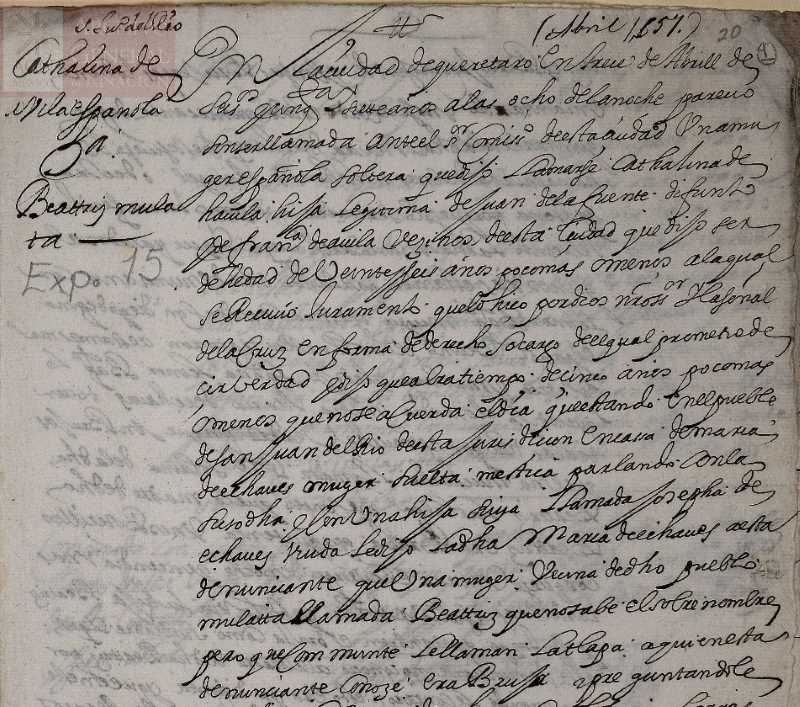 (Abril 1657.)
20
Cathalina de
Avila española
Ga.
Beatriz mula
ta
Expo. 15
En la ciudad de queretaro en nueve de Abrill de
seisçtos y cinqta y siete años a las ocho de la noche pareçio
sin ser llamada ante el sr comisso de esta ciudad Una mu
ger española soltera que dijo llamarse Cathalina de
hauila hija legitima de Juan de la fuente difunto
y de franca de auila Vezinos de esta Ciudad que dijo ser
de hedad de Veinte y seis años poco mas o menos a la qual
se Reciuio Juramento que lo hiço por dios nro sor y la señal
de la Cruz en forma de derecho so cargo de el qual prometio de
cir Verdad y dijo que abra tiempo de cinco años poco mas
o menos que no se acuerda el dia que estando en el pueblo
de san Juan del Rio de esta Jurisdicion en casa de maria
de echaves muger suelta mestiça parlando con la
susodha y con Una hija suya llamada Josepha de
echaves viuda le dijo la dha Maria de echaves a esta
denunciante que Una muger Vecina de dho pueblo
mulatta llamada Beatriz que no sabe el sobre nombre
pero que Communmte le llaman La tlapa a quien esta
denunciante Conoze era Bruja y preguntandole